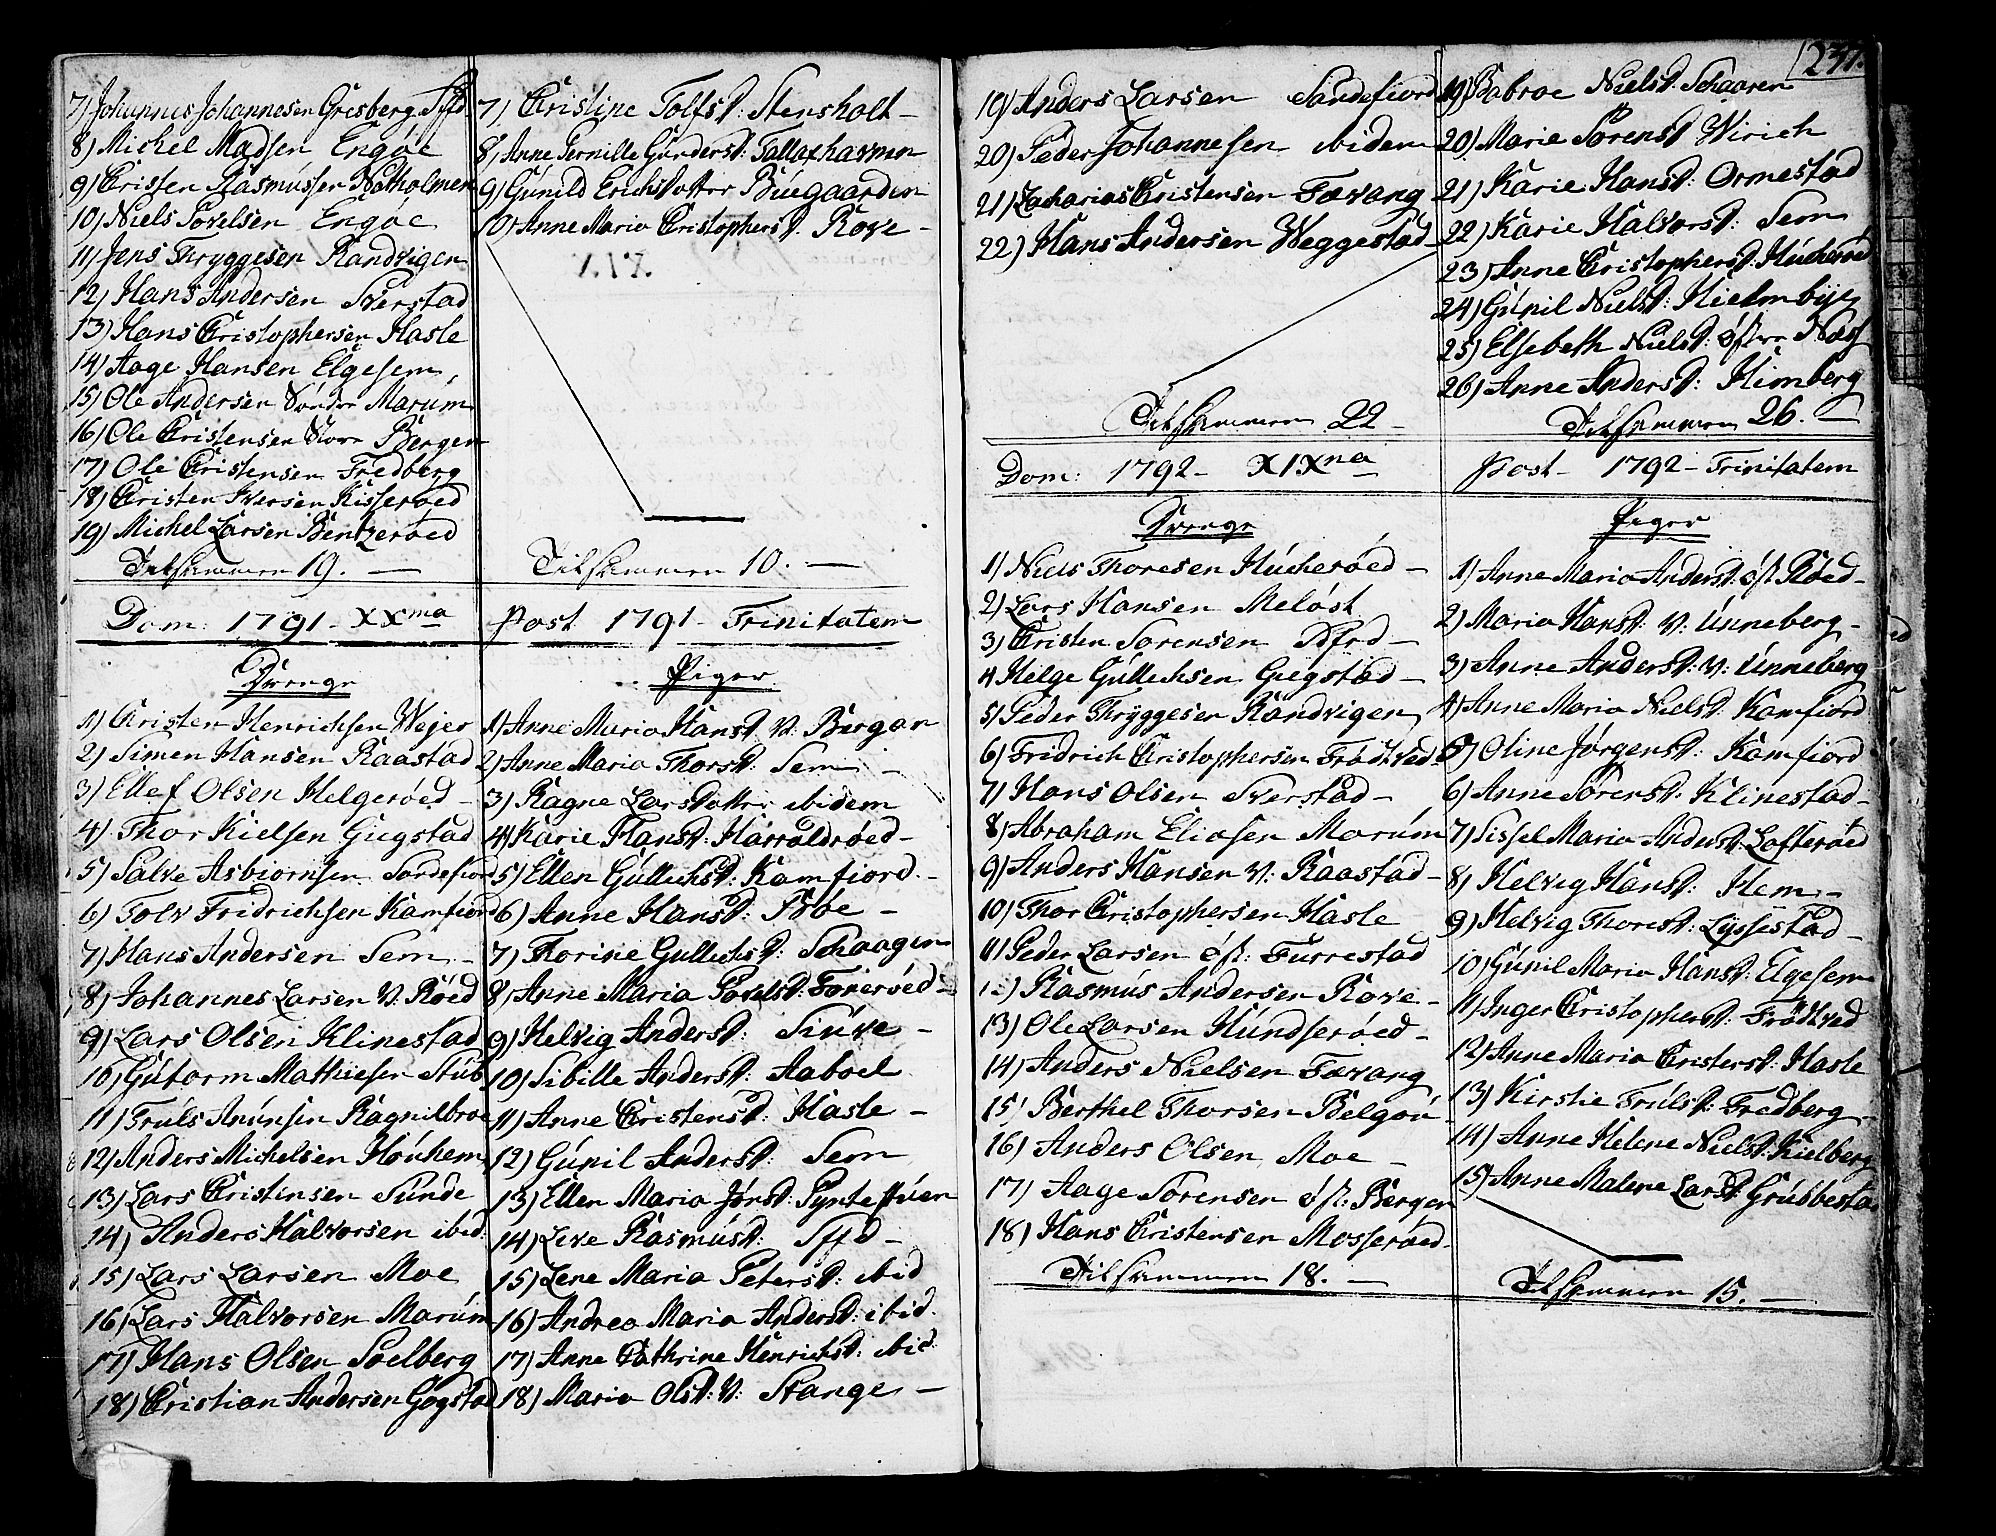 7) Johannes Johannesen Gresberg Sffd.
8) Michel Madsen Engöe
9) Cristen Rasmússen Natholmen
10) Niels Povelsen Engöe
11) Jens Thryggesen Randvigen
12) Hans Andersen Sverstad
13) Hans Cristophersen Hasle
14) Aage Hansen Elgesem
15) Ole Andersen Söndre Marúm
16) Ole Cristensen Store Bergen
17) Ole Cristensen Fredberg
18) Cristen Iversen Kisseröed
19) Michel Larsen Bentzeröed
Tilsammen 19. —
Dom: 1791 – XXma
Drenge
1) Cristen Henrichsen Wejer
2) Simen Hansen Raastad
3) Ellef Olsen Helgeröed –
4) Thor Kielsen Gugstad
5) Salve Asbiörnsen Sandefiord
6) Tolv Fridrichsen Kamfiord
7) Hans Andersen Sem –
8) Johannes Larsen V: Röed
9) Lars Olsen Klinestad
10) Gútorm Mathiesen Stúb
11) Trúls Anúnsen Ragnilbroe
12) Anders Michelsen Hóúkem
13) Lars Cristensen Súnde
14) Anders Halvorsen ibid:
15) Lars Larsen Moe
16) Lars Halvorsen Marúm
17) Hans Olsen Soelberg
18) Cristian Andersen Gogstad
7) Cristine Tolfsd: Stensholt –
8) Anne Pernille Gúndersd: Tallaxhavnen
9) Gúnild Erichsdotter Búegaarden
10) Anne Maria Cristophersd. Rove –
Tilsammen 10. —
Post 1791 – Trinitatem
Piger
1) Anne Maria Hansd. V: Bergan
2) Anne Maria Thorsd: Sem –
3) Ragne Larsdotter ibidem
4) Karie Hansd: Harraldröed –
5) Ellen Gúllichsd: Kamfiord. –
6) Anne Hansd: Roe –
7) Thorine Gullichsd: Schaagen
8) Anne Maria Povelsd: Foneröed –
9) Helvig Andersd: Sinve –
10) Sibille Andersd: Aaboel
11) Anne Cristensd: Hasle –
12) Gúnil Andersd: Sem
13) Ellen Maria Jörsd:
14) Leve Rasmúsd: Sffd –
15) Lene Maria Petersd: ibid
16) Andrea Maria Andersd: ibid.
17) Anne Cathrine Henrichsd: ibid:
18) Maria Olsd: V: Stange –
241.
19) Anders Larsen Sandefiord
20) Peder Johannesen ibidem
21) Zacharias Cristensen Favang
22) Hans Andersen Weggestad –
Tilsammen 22 –
Dom: 1792 – XIXna
Drenge
1) Niels Thoresen Húcheröed –
2) Lars Hansen Melöst
3) Cristen Sorensen Sffd –
4 Helge Gúllichsen Gugstad –
5) Peder Thryggesen Randvigen
6) Fridrich Cristophersen Frödtved
7) Hans Olsen Sverstad –
8) Abraham Eliasen Marúm
9) Anders Hansen V: Raastad –
10) Thor Cristophersen Hasle
11 Peder Larsen öst: Fúrrestad
12) Rasmús Andersen Rove –
13) Ole Larsen Húndseröed –
14) Anders Nielsen Favang
15) Berthel Thorsen Belgoú
16) Anders Olsen Moe –
17) Aage Sörensen öst: Bergen
18) Hans Cristensen Mosseröed
Tilsammen 18. —
19) Babroe Nielsd. Schaaren
20) Marie Sörensd Wirich
21) Karie Hansd: Ormestad
22) Karie Halvorsd: Sem
23) Anne Cristophersd: Húcheröed
24) Gúnil Nielsd: Hielmbye
25) Elsebeth Nielsd: östre Nes
26) Anne Andersd: Himberg
Tilsammen 26. —
Post – 1792 – Trinitatem
Piger
1) Anne Maria Andersd. öst. Röed –
2) Maria Hansd: V: Únneberg –
3) Anne Andersd: V: Únneberg
4) Anne Maria Nielsd: Kamfiord
5) Oline Jörgensd: Kamfiord
6) Anne Sörensd: Klinestad –
7) Sissel Maria Andersd: Lofteröed
8) Helvig Hansd: Hem –
9) Helvig Thoresd: Lyssestad –
10) Gúnil Maria Hansd: Elgesem
11) Inger Cristophersd: Frödtved
12) Anne Maria Cristensd: Hasle
13) Kirstie Trúlsd: Fredberg
14) Anne Helene Nielsd: Kielberg
15) Anne Malene Larsd: Grúbbestad
Tilsammen 15. —